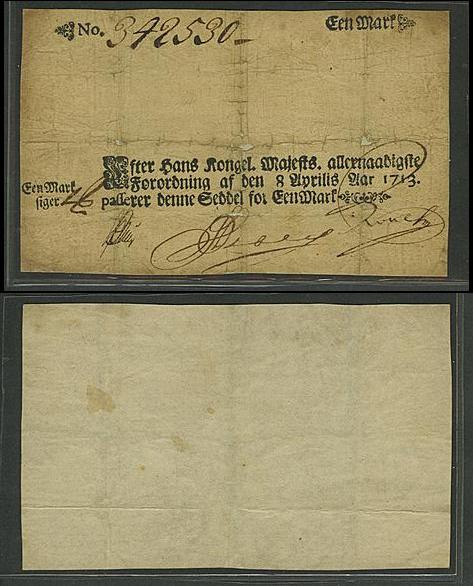 No. 342530 Een Mark
Efter Hans Kongel. Majests. allernaadigste
Forordning af den 8 Aprilis Aar 1713.
Een Mark
siger
passerer denne Seddel for Een Mark